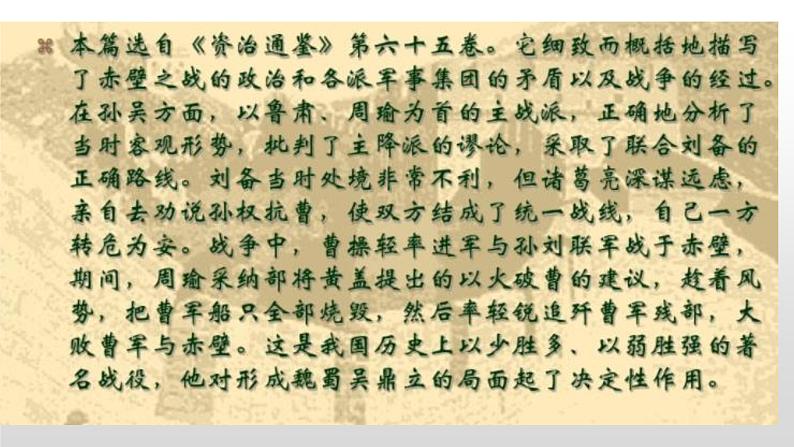 本篇选自《资治通鉴》第六十五卷。它细致而概括地描写
了赤壁之战的政治和各派军事集团的矛盾以及战争的经过。
在孙吴方面，以鲁肃、周瑜为首的主战派，正确地分析了
当时客观形势，批判了主降派的谬论，采取了联合刘备的
正确路线。刘备当时处境非常不利，但诸葛亮深谋远虑，
亲自去劝说孙权抗曹，使双方结成了统一战线，自己一方
转危为安。战争中，曹操轻率进军与孙刘联军战于赤壁，
期间，周瑜采纳部将黄盖提出的以火破曹的建议，趁着风
势，把曹军船只全部烧毁，然后率轻锐追歼曹军残部，大
败曹军与赤壁。这是我国历史上以少胜多、以弱胜强的著
名战役，他对形成魏蜀吴鼎立的局面起了决定性作用。